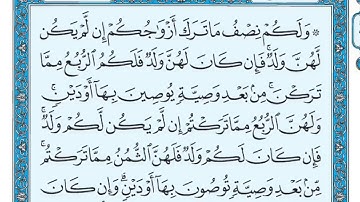 ۞ وَلَكُمْ نِصْفُ مَا تَرَكَ أَزْوَٰجُكُمْ إِن لَّمْ يَكُن
لَّهُنَّ وَلَدٌ ۚ فَإِن كَانَ لَهُنَّ وَلَدٌ فَلَكُمُ ٱلرُّبُعُ مِمَّا
تَرَكْنَ ۚ مِنۢ بَعْدِ وَصِيَّةٍ يُوصِينَ بِهَآ أَوْ دَيْنٍ ۚ
وَلَهُنَّ ٱلرُّبُعُ مِمَّا تَرَكْتُمْ إِن لَّمْ يَكُن لَّكُمْ وَلَدٌ ۚ
فَإِن كَانَ لَكُمْ وَلَدٌ فَلَهُنَّ ٱلثُّمُنُ مِمَّا تَرَكْتُم ۚ
مِّنۢ بَعْدِ وَصِيَّةٍ تُوصُونَ بِهَآ أَوْ دَيْنٍ ۗ وَإِن كَانَ